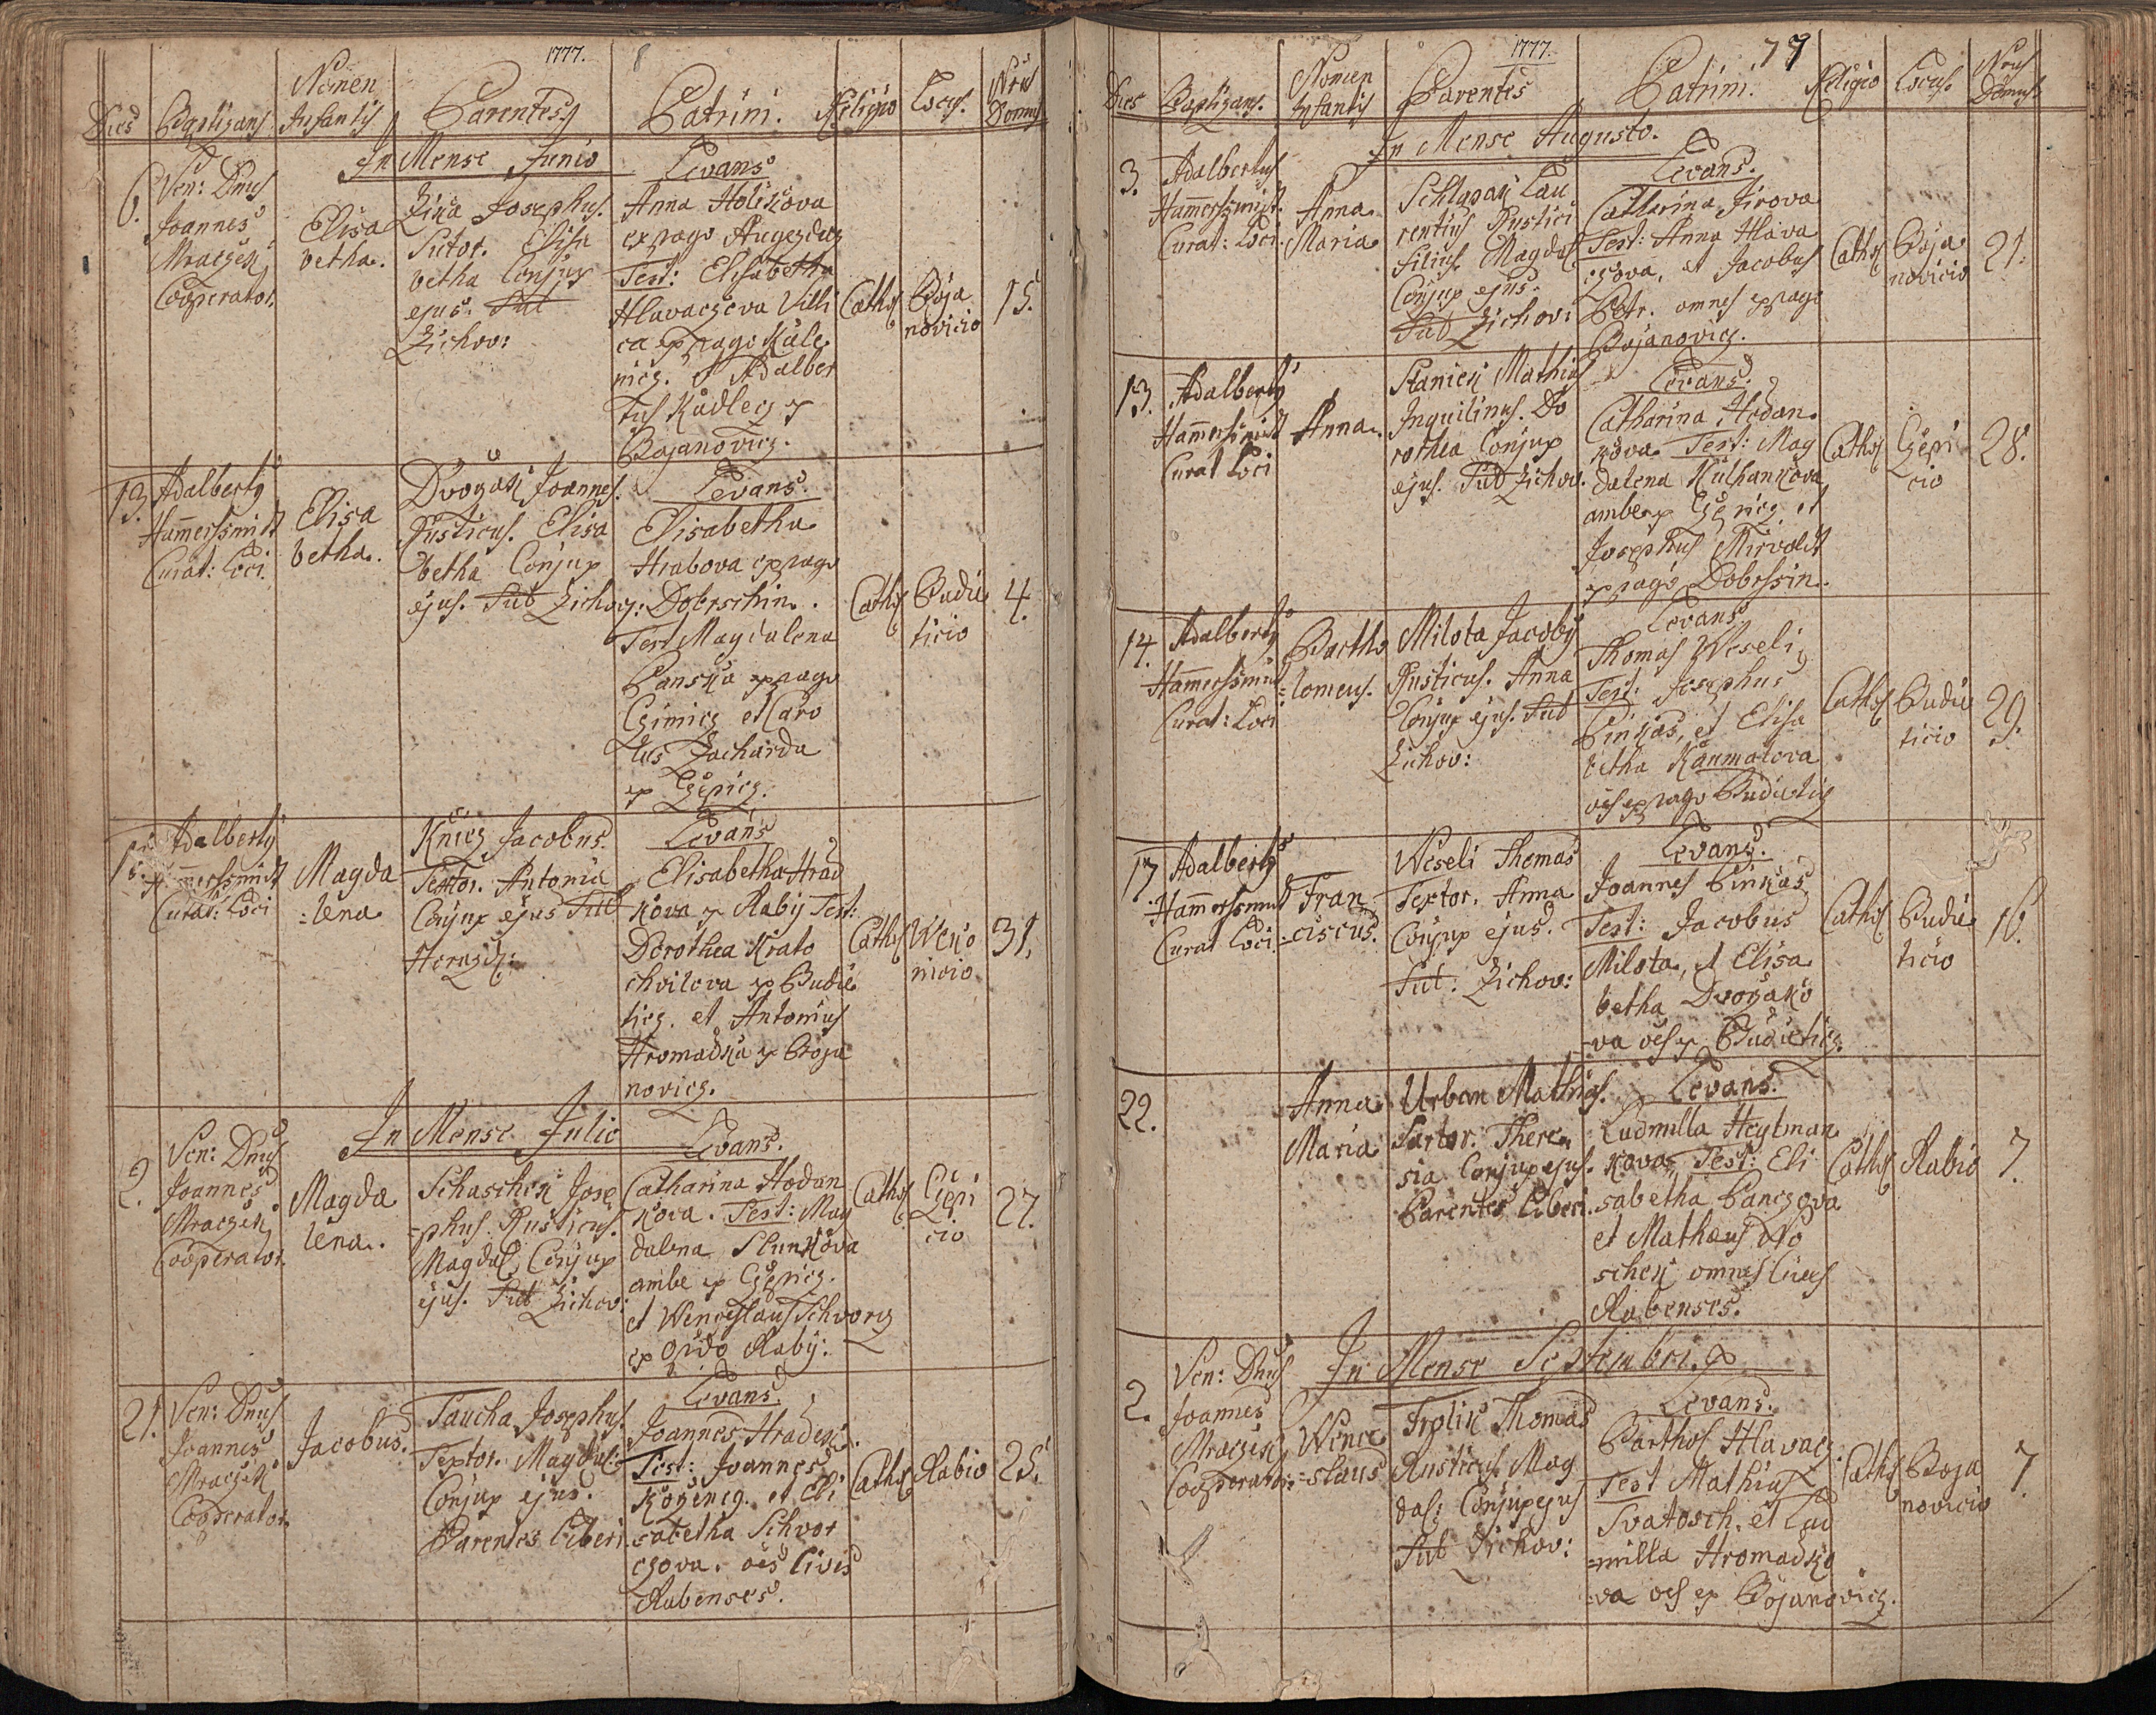 1777.
Dies Baptizans Nomen Infantis Parentes Patrini. Religio Locus. Nrus Domus
In Mense Junio
6. Ven: Dnus
Joannes
Mraczek
Cooperator.
Elisa
betha.
Zika Josephus.
Sutor. Elisa
betha Conjux
ejus. Sub
Zichov:
Levans
Anna Holikova
ex pago Augezdecz
Test: Elisabetha
Hlavaczova Villi
ca ex pago Kale
nicz. et Adalber
tus Kadlecz ex
Bojanovicz.
Cathol
Boja
novicio
15.
13. Adalbertg
Ham̄erssmidt
Curat: Loci.
Elisa
betha.
Dvorzak Joannes.
Rusticus. Elisa
betha Conjux
ejus. Sub Zichov:
Levans.
Elisabetha
Hrabova ex pago
Dobrschin.
Test Magdalena
Panska ex pago
Czimicz et Caro
lus Zacharda
ex Czepicz.
Cathol
Budie
ticio
4.
Adalbertg
Curat: Loci
Magda
=lena
Knicz Jacobus.
Textor. Antonia
Conjux ejus Sub
Horazd:
Levans
Elisabetha Hrad
kova ex Raby Test:
Dorothea Krato
chvilova ex Budie
ticz. et Antonius
Hromadka ex Boja
novicz.
Cathol
nicio
31.
In Mense Julio
2. Ven: Dnus
Joannes
Mraczek
Cooperator.
Magda
lena.
Schaschek Jose
=phus. Rusticus.
Magdal: Conjux
ejus. Sub Zichov:
Levans.
Catharina Hodan
kova. Test: Mag
dalena Slunkova
ambe ex Czepicz.
et Wenceslaus Schvorcz
ex opido Raby.
Cathol
Czepi
cio
27.
21. Ven: Dnus
Joannes
Mraczek
Cooperator.
Jacobus.
Taucha Josephus.
Textor. Magdal:
Conjux ejus.
Parentes Liberi
Levans.
Joannes Hradek.
Test: Joannes
Korzencz. et Eli
sabetha Schvor
czova. oēs Cives
Rabenses.
Cathol
Rabio
25.
1777.
79
Dies Baptizans. Nomen Infantis Parentes Patrini. Religio Locus. Nrus Domus
In Mense Augusto.
3. Adalbertus
Ham̄erssmidt.
Curat: Loci.
Anna
Maria
Schlapak Lau
rentius Rustici
filius. Magdal
Conjux ejus.
Sub Zichov:
Levans.
Catharina Jirova
Test: Anna Hlava
czova, et Jacobus
Petr. omnes ex pago
Bojanovicz.
Cathol
Boja
novicio
21.
13. Adalbertg
Ham̄erssmidt
Curat Loci
Anna.
Staniek Mathias
Inquilinus. Do
rothea Conjux
ejus. Sub Zichov.
Levans.
Catharina Hodan
kova. Test: Mag
dalena Kulhankova
ambe ex Czepicz et
Josephus Mirvald
ex pago Dobrssin.
Cathol
Czepi
cio
28.
14. Adalbertg
Ham̄erssmidt
Curat: Loci
Bartho
=lomeus.
Milota Jacobg
Rusticus. Anna
Conjux ejus. Sub
Zichov:
Levans
Thomas Weseli,
Test: Josephus
Pinkas, et Elisa
betha Kanmalova
oēs ex pago Budieticz
Cathol
Budie
ticio
29.
17 Adalbertg
Ham̄erssmidt
Curat Loci.
Fran
=ciscus.
Weseli Thomas
Textor. Anna
Conjux ejus.
Sub. Zichov:
Levans.
Joannes Pinkas
Test: Jacobus
Milota, et Elisa
betha Dvorzako
va oēs ex Budieticz.
Cathol
Budie
ticio
16.
22.
Anna
Maria
Urban Mathias.
Sartor. There
sia Conjux ejus.
Parentes Liberi.
Levans.
Ludmilla Heytman
kova, Test: Eli
sabetha Panczova
et Mathaus No
schek omnes Cives
Rabenses.
Cathol
Rabio
7.
In Mense Septembri.
2. Ven: Dnus
Joannes
Mraczek
Cooperator.
Wence
=slaus
Frolik Thomas
Rusticus. Mag
dal: Conjux ejus
Sub Zichov:
Levans.
Barthol Hlavacz.
Test Mathias
Svatosch. et Lud
=milla Hromadko
va oēs ex Bojanovicz.
Cathol
Boja
novicio
7.